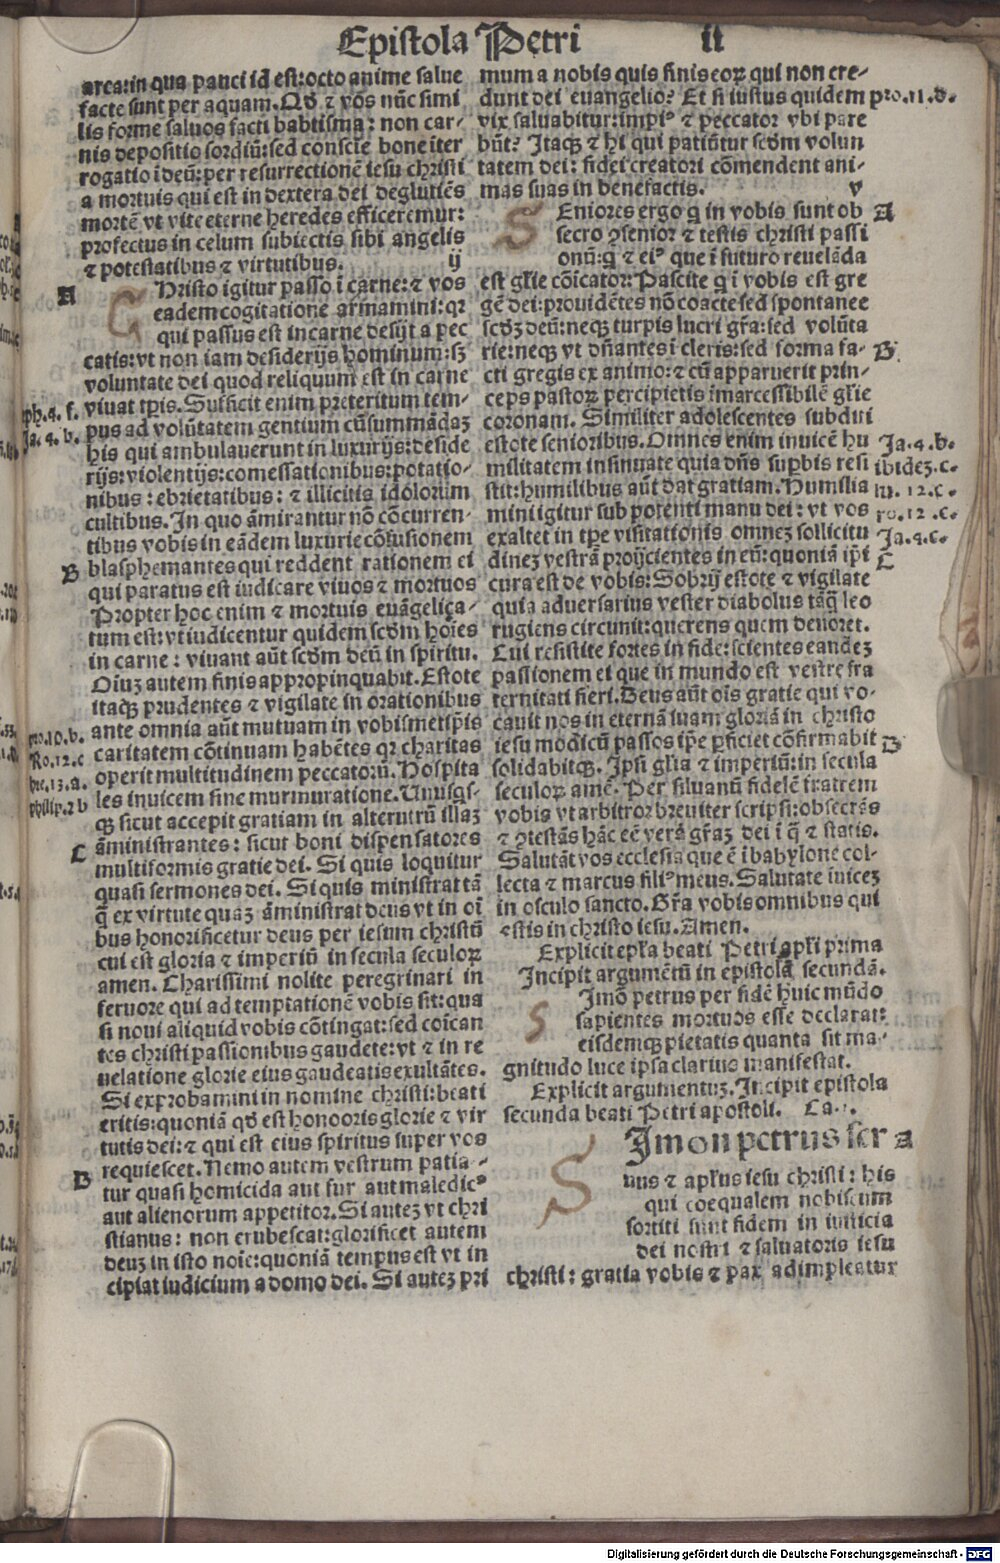 Epistola Petri ii
arca:in qua pauci id est:octo anime salue
facte sunt per aquam. Qđ ⁊ vōs nūc simi
lis forme saluos facti babtisma: non car-
nis depositio sordiū:sed conscie bone iter
rogatio ī deū:per resurrectionē iesu christi
a mortuis qui est in dextera dei deglutiēs
mortē vt vite eterne heredes efficeremur:
profectus in celum subiectis sibi angelis
⁊ potestatibus ⁊ virtutibus. iij
A
CHristo igitur passo ī carne:⁊ vos
eadem cogitatione armamini:qꝛ
qui passus est in carne desijt a pec
catis:vt non iam desiderijs hominum:sꝫ
voluntate dei quod reliquum est in carne
viuat tꝑis. Sufficit enim preteritum tem-
pus ad volūtatem gentium cūsummādaꝫ
his qui ambulauerunt in luxurijs:deside
rijs:violentijs:comessationibus:potatio-
nibus: ebrietatibus: ⁊ illicitis idolorum
cultibus. In quo āmirantur nō cōcurren-
tibus vobis in eādem luxurie cōfusionem
B blasphemantes qui reddent rationem ei
qui paratus est iudicare viuos ⁊ mortuos
Propter hoc enim ⁊ mortuis euāgeliça-
tum est:vt iudicentur quidem scđm hoīes
in carne: viuant aūt scđm deū in spiritu.
Oīuꝫ autem finis appropinquabit. Estote
itaqꝫ prudentes ⁊ vigilate in orationibus
ante omnia aūt mutuam in vobismetipīs
pro.10.b.
caritatem cōtinuam habētes qꝛ charitas
Ro.12.c
operit multitudinem peccatorū. Hospita
hec.13.a.
les inuicem sine murmuratione. Unusqs-
philip.2 b
qꝫ sicut accepit gratiam in alterutrū illaꝫ
C āministrantes: sicut boni dispensatores
multiformis gratie dei. Si quis loquitur
quasi sermones dei. Si quis ministrat tā
q̄ ex virtute quaꝫ āministrat deus vt in oī
bus honorificetur deus per iesum christū
cui est gloria ⁊ imperiū in secula seculoꝝ
amen. Charissimi nolite peregrinari in
feruore qui ad temptationē vobis fit:qua
si noui aliquid vobis cōtingat:sed coīcan
tes christi passionibus gaudete:vt ⁊ in re
uelatione glorie eius gaudeatis exultātes.
Si exprobamini in nomine christi:beati
eritis:quoniā qđ est honooris glorie ⁊ vir
tutis dei:⁊ qui est eius spiritus super vos
D requiescet. Nemo autem vestrum patia-
tur quasi homicida aut fur aut maledicꝰ
aut alienorum appetitor. Si auteꝫ vt chri
stianus: non erubescat:glorificet autem
deuꝫ in isto noīe:quoniā tempus est vt in
cipiat iudicium a domo dei. Si auteꝫ pri
mum a nobis quis finis eoꝝ qui non cre-
dunt dei euangelio? Et si iustus quidem pro.11.d.
vix saluabitur:impiꝰ ⁊ peccator vbi pare
būt? Itaqꝫ ⁊ hi qui patiūtur scđm volun
tatem dei: fidei creatori cōmendent ani-
mas suas in benefactis. v
SEniores ergo q̄ in vobis sunt ob A
secro ꝯsenior ⁊ testis christi passi
onū:q̄ ⁊ eiꝰ que ī futuro reuelāda
est gl̄ie cōicator: Pascite q̄ ī vobis est gre
gē dei:prouidētes nō coacte sed spontanee
scđꝫ deū:neqꝫ turpis lucri gr̄a:sed volūta
rie:neqꝫ vt dn̄antes ī cleris:sed forma fa- B
cti gregis ex animo:⁊ cū apparuerit prin-
ceps pastoꝝ percipietis īmarcessibilē gl̄ie
coronam. Similiter adolescentes subditi
estote senioribus. Omnes enim inuicē hu Ja.4.b.
militatem insinuate quia dn̄s suꝑbis resi ibideꝫ.c.
stit:humilibus aūt dat gratiam. Humilia lu.12.c.
mini igitur sub potenti manu dei: vt vos ro.12.c.
exaltet in tꝑe visitationis omneꝫ sollicitu Ja.4.c.
dineꝫ vestrā proijcientes in eū:quoniā ipī C
cura est de vobis: Sobrij estote ⁊ vigilate
quia aduersarius vester diabolus tāq̄ leo
rugiens circunit:querens quem deuoret.
Cui resistite fortes in fide:scientes eandeꝫ
passionem ei que in mundo est vestre fra
ternitati fieri. Deus aūt oīs gratie qui vo-
cauit nos in eternā suam gloriā in christo
iesu modicū passos ipē ꝑficiet cōfirmabit D
solidabitqꝫ. Ipsi gl̄ia ⁊ imperiū:in secula
seculoꝝ amē. Per siluanū fidelē fratrem
vobis vt arbitror breuiter scripsi:obsecrēs
⁊ ꝯtestās hāc eē verā gr̄aꝫ dei ī q̄ ⁊ statis.
Salutāt vos ecclesia que ē ī babylone col-
lecta ⁊ marcus filiꝰ meus. Salutate īuiceꝫ
in osculo sancto. Gr̄a vobis omnibus qui
estis in christo iesu. Amen.
Explicit epl̄a beati Petri apl̄i prima
Incipit argumētū in epistolā secundā.
SImō petrus per fidē huic mūdo
sapientes mortuos esse declarat:
eisdemqꝫ pietatis quanta sit ma-
gnitudo luce ipsa clarius manifestat.
Explicit argumentuꝫ. Incipit epistola
secunda beati Petri apostoli. Ca.i.
SImon petrus ser A
uus ⁊ apl̄us iesu christi: his
qui coequalem nobiscum
sortiti sunt fidem in iusticia
dei nostri ⁊ saluatoris iesu
christi: gratia vobis ⁊ pax adimpleatur
Digitalisierung gefördert durch die Deutsche Forschungsgemeinschaft - DFG